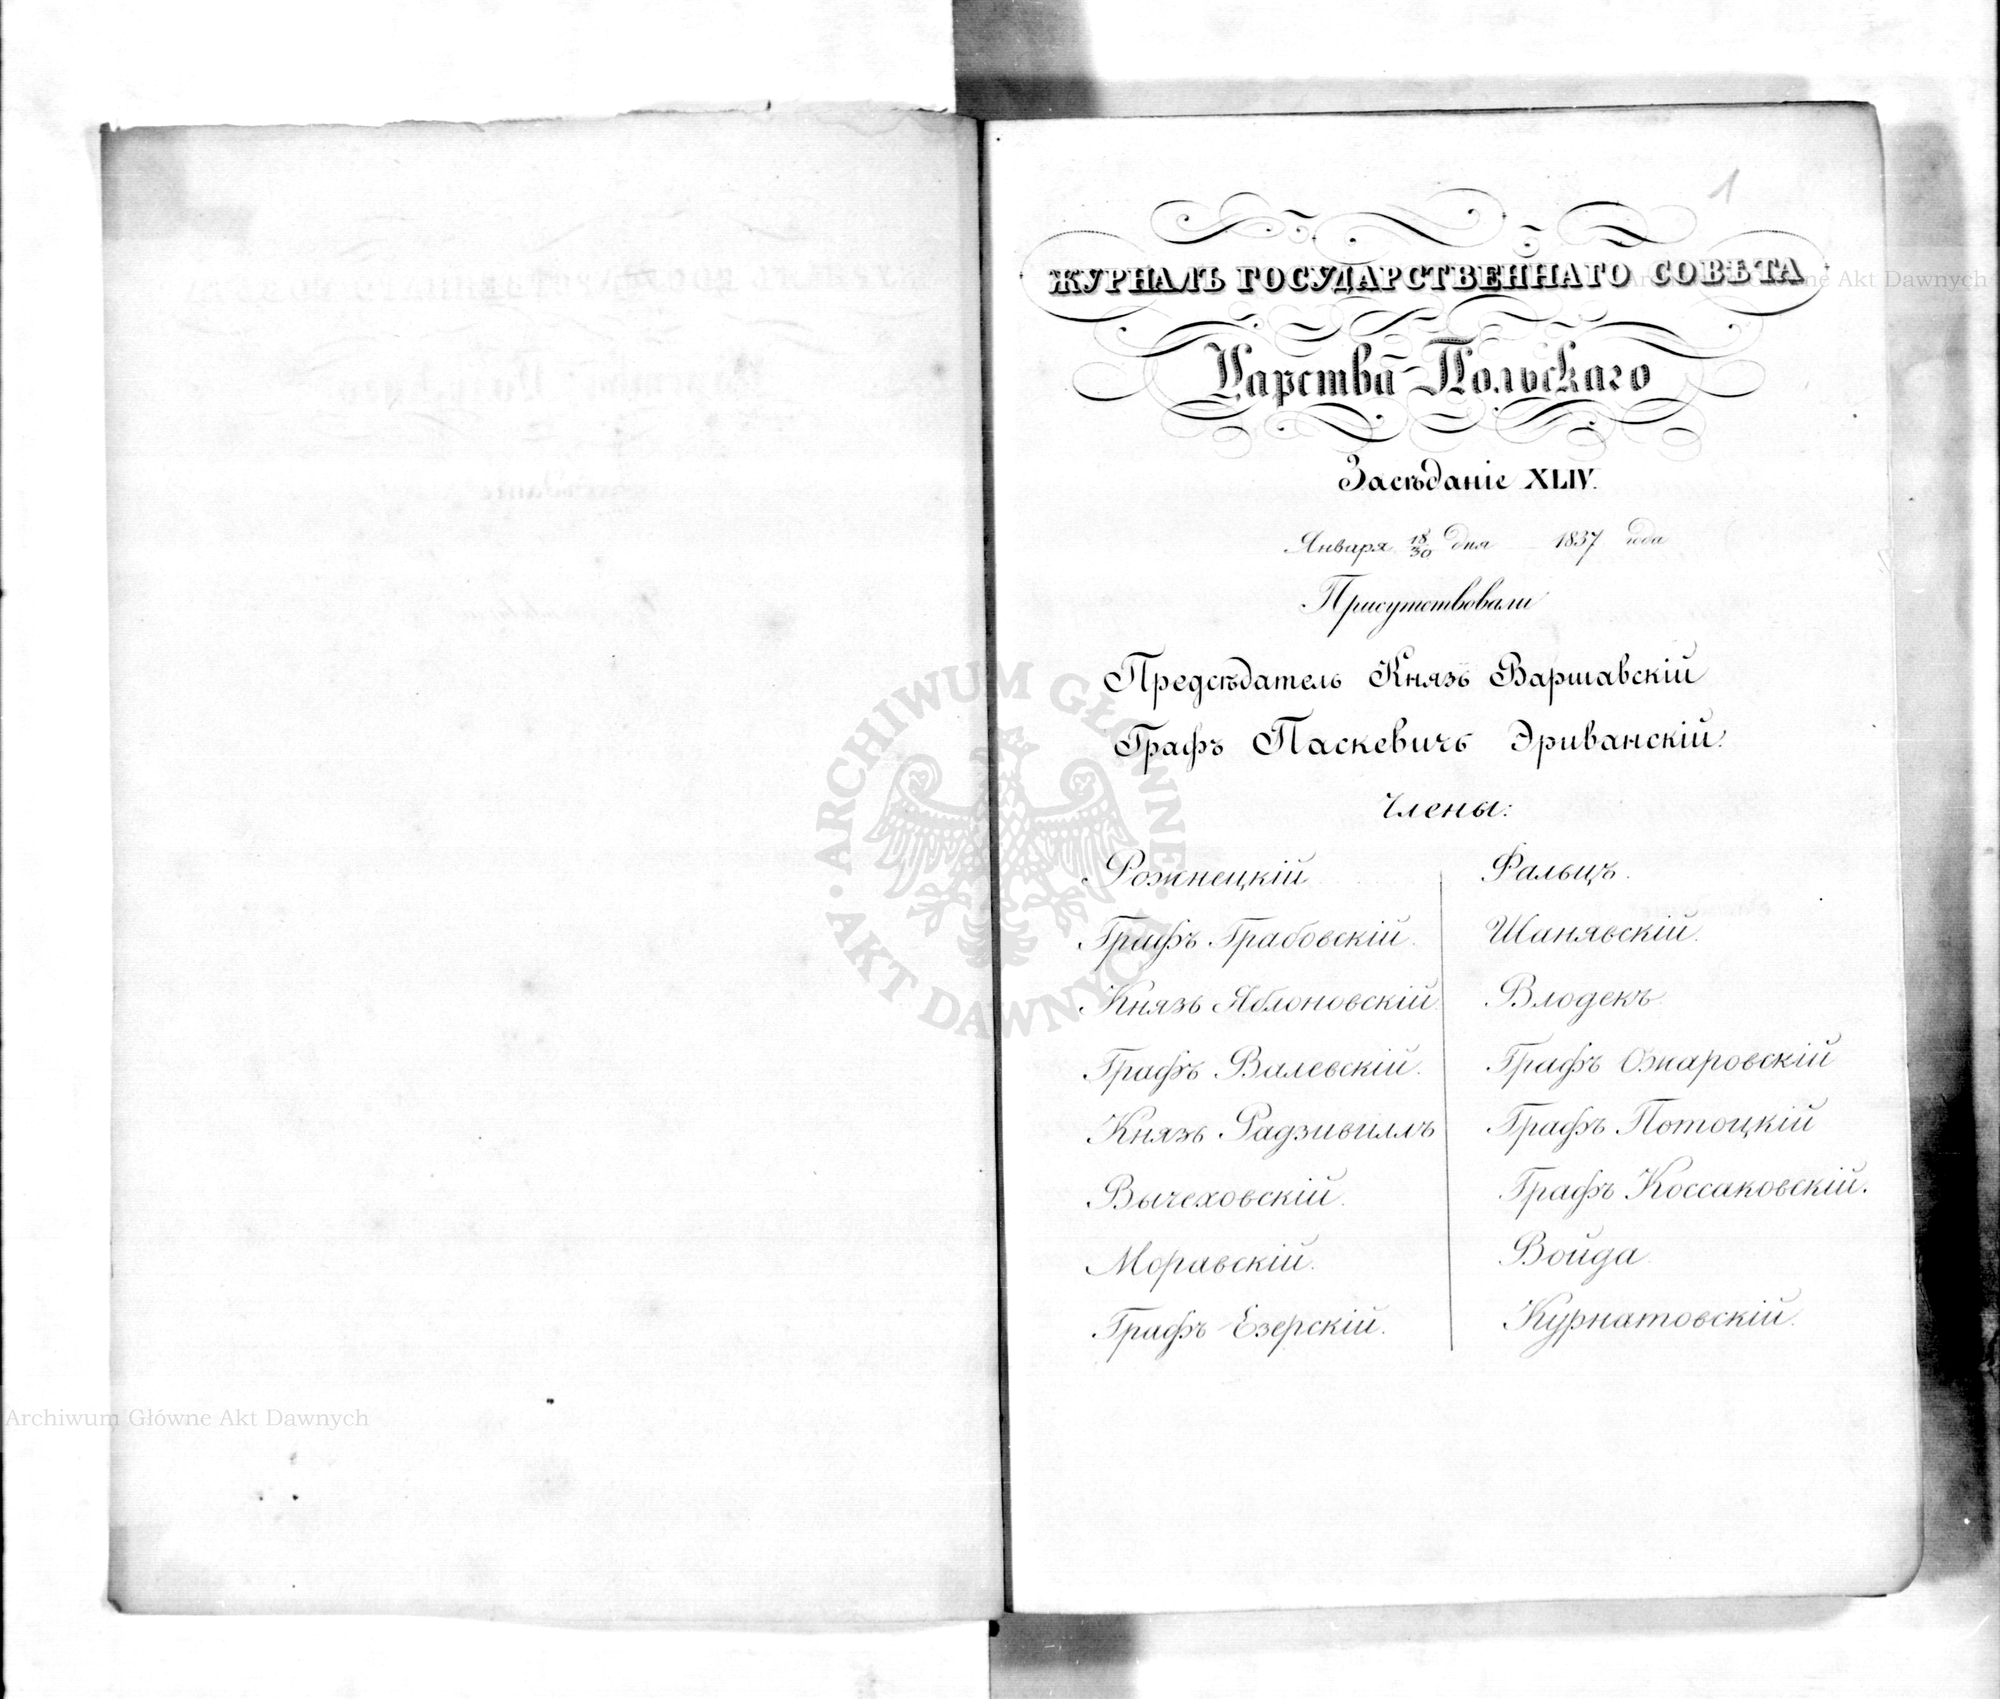 1
ЖУРНАЛЪ ГОСУДАРСТВЕННАГО СОВѢТА
Царства Польскаго
Засѣданіе XLIV.
Января 18/30 дня 1837 года
Присутствовали
Предсѣдатель Князь Варшавскій
Графъ Паскевичъ Эриванскій.
Члены:
Рожнецкій
Графъ Грабовскій.
Князь Яблоновскій.
Графъ Валевскій.
Князь Радзивиллъ
Вычеховскій.
Моравскій.
Графъ Езерскій.
Фальцъ.
Шанявскій.
Влодекъ
Графъ Ожаровскій
Графъ Потоцкій
Графъ Коссаковскій.
Войда
Курнатовскій.
ARCHIWUM GŁÓWNE
AKT DAWNYCH
Archiwum Główne Akt Dawnych
Archiwum Główne Akt Dawnych